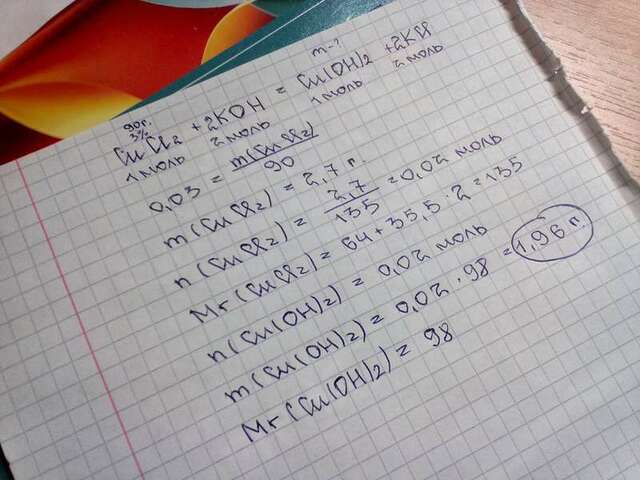 m-?
90г.
3%
CuCl2 + 2KOH = Cu(OH)2 + 2KCl
1моль 2моль 1моль 2моль
0,03 = m(CuCl2)/90
m(CuCl2) = 2,7 г.
n(CuCl2) = 2,7/135 = 0,02 моль
Mr(CuCl2) = 64 + 35,5 · 2 = 135
n(Cu(OH)2) = 0,02 моль
m(Cu(OH)2) = 0,02 · 98 = 1,96 г.
Mr(Cu(OH)2) = 98